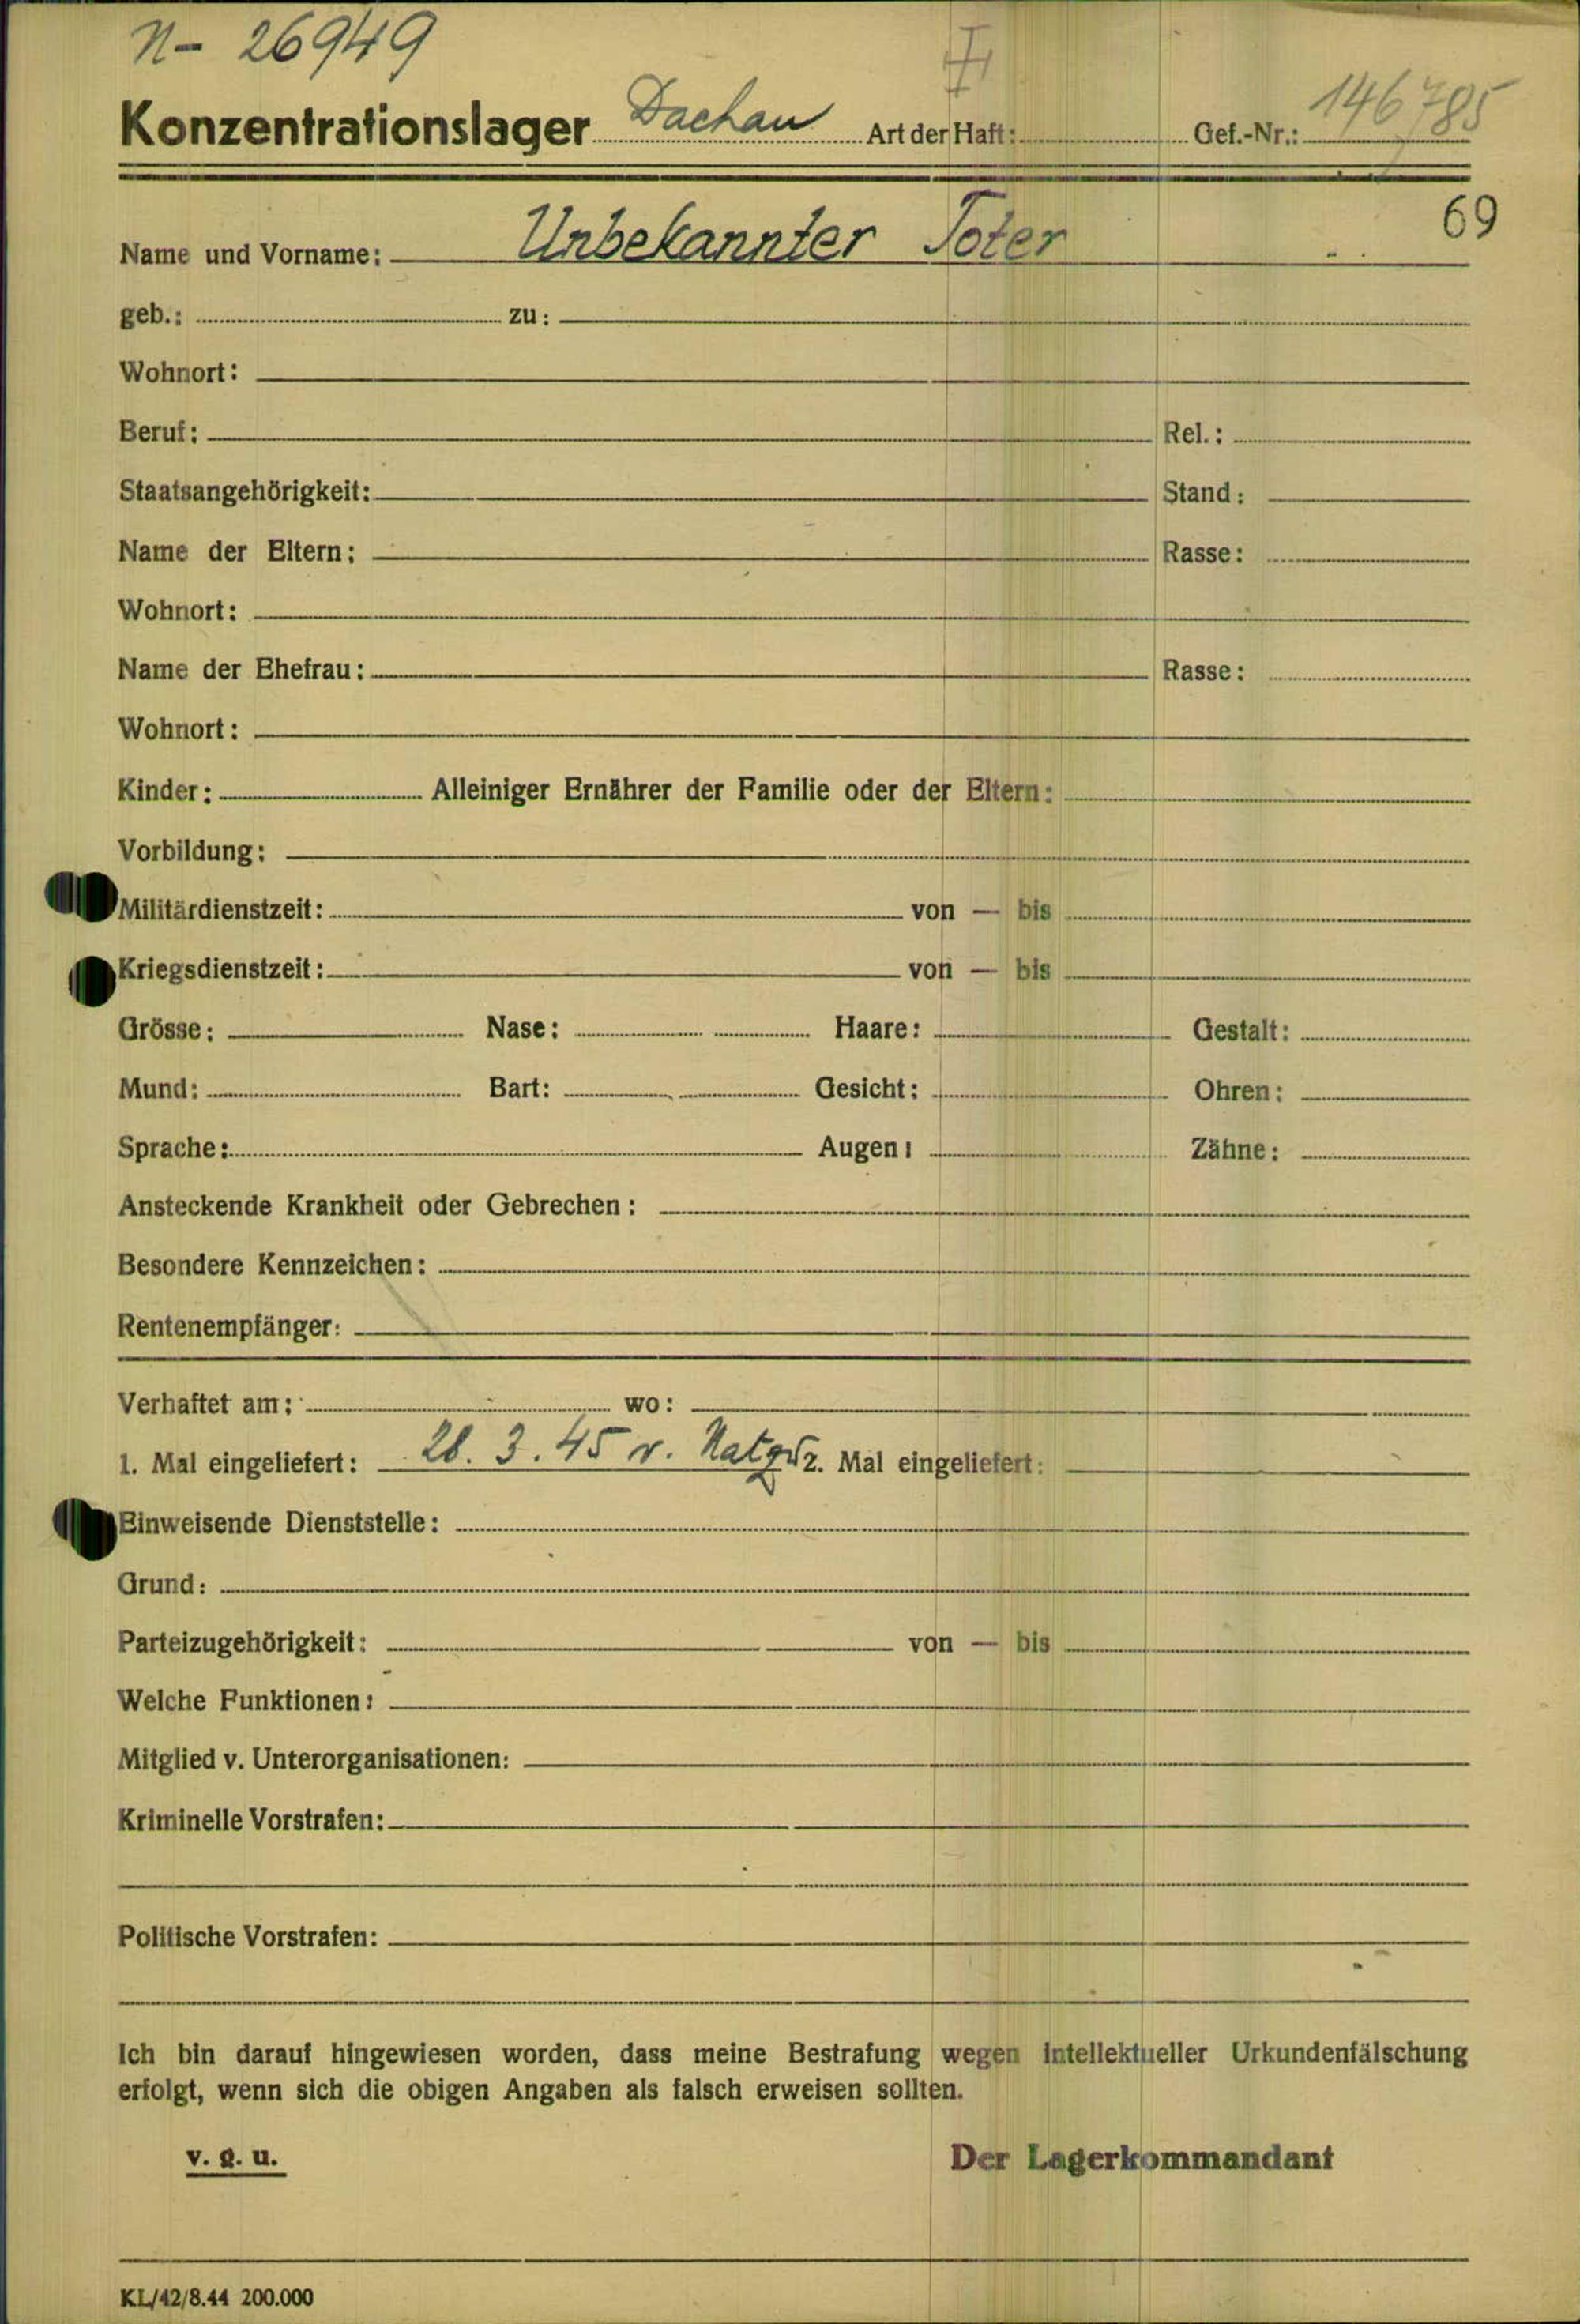 N- 26949
I
Konzentrationslager Dachau Art der Haft: Gef.-Nr.: 146785
69
Name und Vorname: Unbekannter Toter
geb.: zu:
Wohnort:
Beruf: Rel.:
Staatsangehörigkeit: Stand:
Name der Eltern: Rasse:
Wohnort:
Name der Ehefrau: Rasse:
Wohnort:
Kinder: Alleiniger Ernährer der Familie oder der Eltern:
Vorbildung:
Militärdienstzeit: von — bis
Kriegsdienstzeit: von — bis
Grösse: Nase: Haare: Gestalt:
Mund: Bart: Gesicht: Ohren:
Sprache: Augen: Zähne:
Ansteckende Krankheit oder Gebrechen:
Besondere Kennzeichen:
Rentenempfänger:
Verhaftet am: wo:
1. Mal eingeliefert: 28. 3. 45 v. Natzw. 2. Mal eingeliefert:
Einweisende Dienststelle:
Grund:
Parteizugehörigkeit: von — bis
Welche Funktionen:
Mitglied v. Unterorganisationen:
Kriminelle Vorstrafen:
Politische Vorstrafen:
Ich bin darauf hingewiesen worden, dass meine Bestrafung wegen intellektueller Urkundenfälschung
erfolgt, wenn sich die obigen Angaben als falsch erweisen sollten.
v. g. u. Der Lagerkommandant
KL/42/8.44 200.000